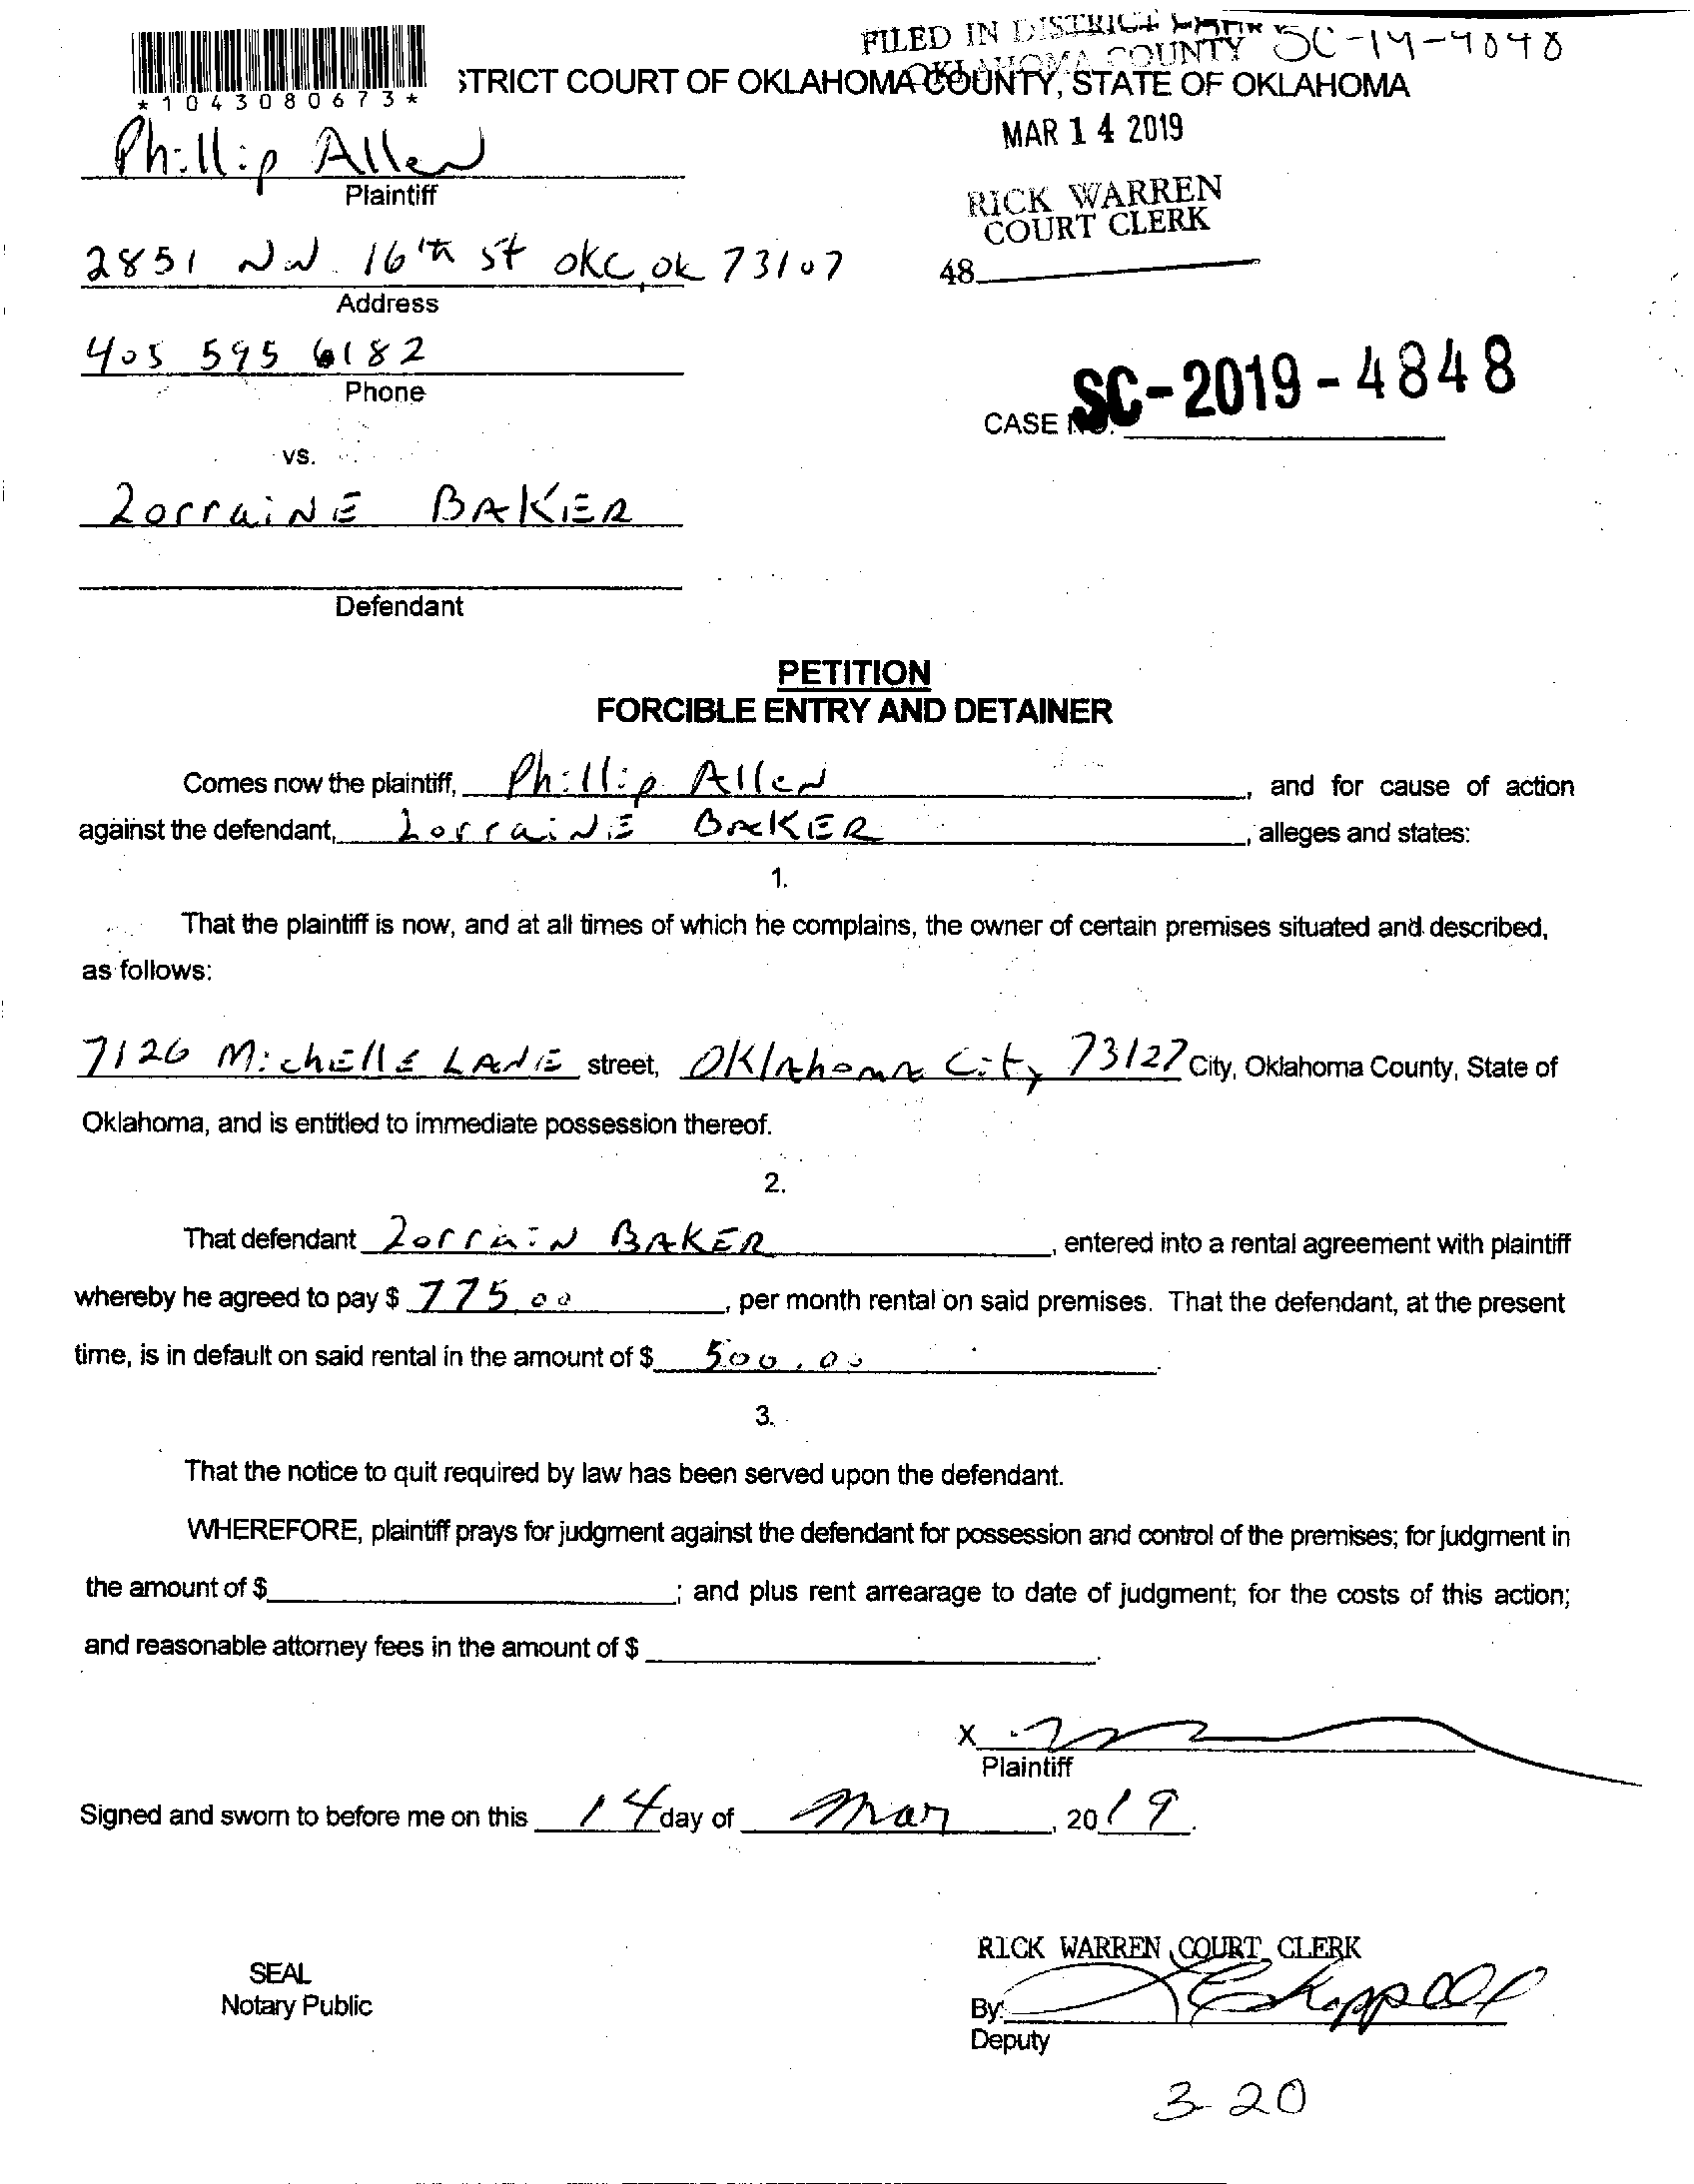 FILED IN DISTRICT COURT
OKLAHOMA COUNTY SC-19-4848
STRICT COURT OF OKLAHOMA COUNTY, STATE OF OKLAHOMA
*1043080673*
MAR 14 2019
Phillip Allen
Plaintiff
RICK WARREN
COURT CLERK
2851 NW. 16th st OKC, OK 73107
48
Address
405 595 6182
Phone
CASE NO. SC-2019-4848
vs.
LorraiNE BAKER
Defendant
PETITION
FORCIBLE ENTRY AND DETAINER
Comes now the plaintiff, Phillip Allen, and for cause of action
against the defendant, LorraiNE BAKER, alleges and states:
1.
That the plaintiff is now, and at all times of which he complains, the owner of certain premises situated and described,
as follows:
7126 MichEllE LANE street, Oklahoma City 73127 City, Oklahoma County, State of
Oklahoma, and is entitled to immediate possession thereof.
2.
That defendant LorraiN BAKER, entered into a rental agreement with plaintiff
whereby he agreed to pay $ 775.00, per month rental on said premises. That the defendant, at the present
time, is in default on said rental in the amount of $ 500.00.
3.
That the notice to quit required by law has been served upon the defendant.
WHEREFORE, plaintiff prays for judgment against the defendant for possession and control of the premises; for judgment in
the amount of $ ; and plus rent arrearage to date of judgment; for the costs of this action;
and reasonable attorney fees in the amount of $ .
X
Plaintiff
Signed and sworn to before me on this 14 day of Mar, 2019.
RICK WARREN, COURT CLERK
SEAL
Notary Public
By:
Deputy
3-20